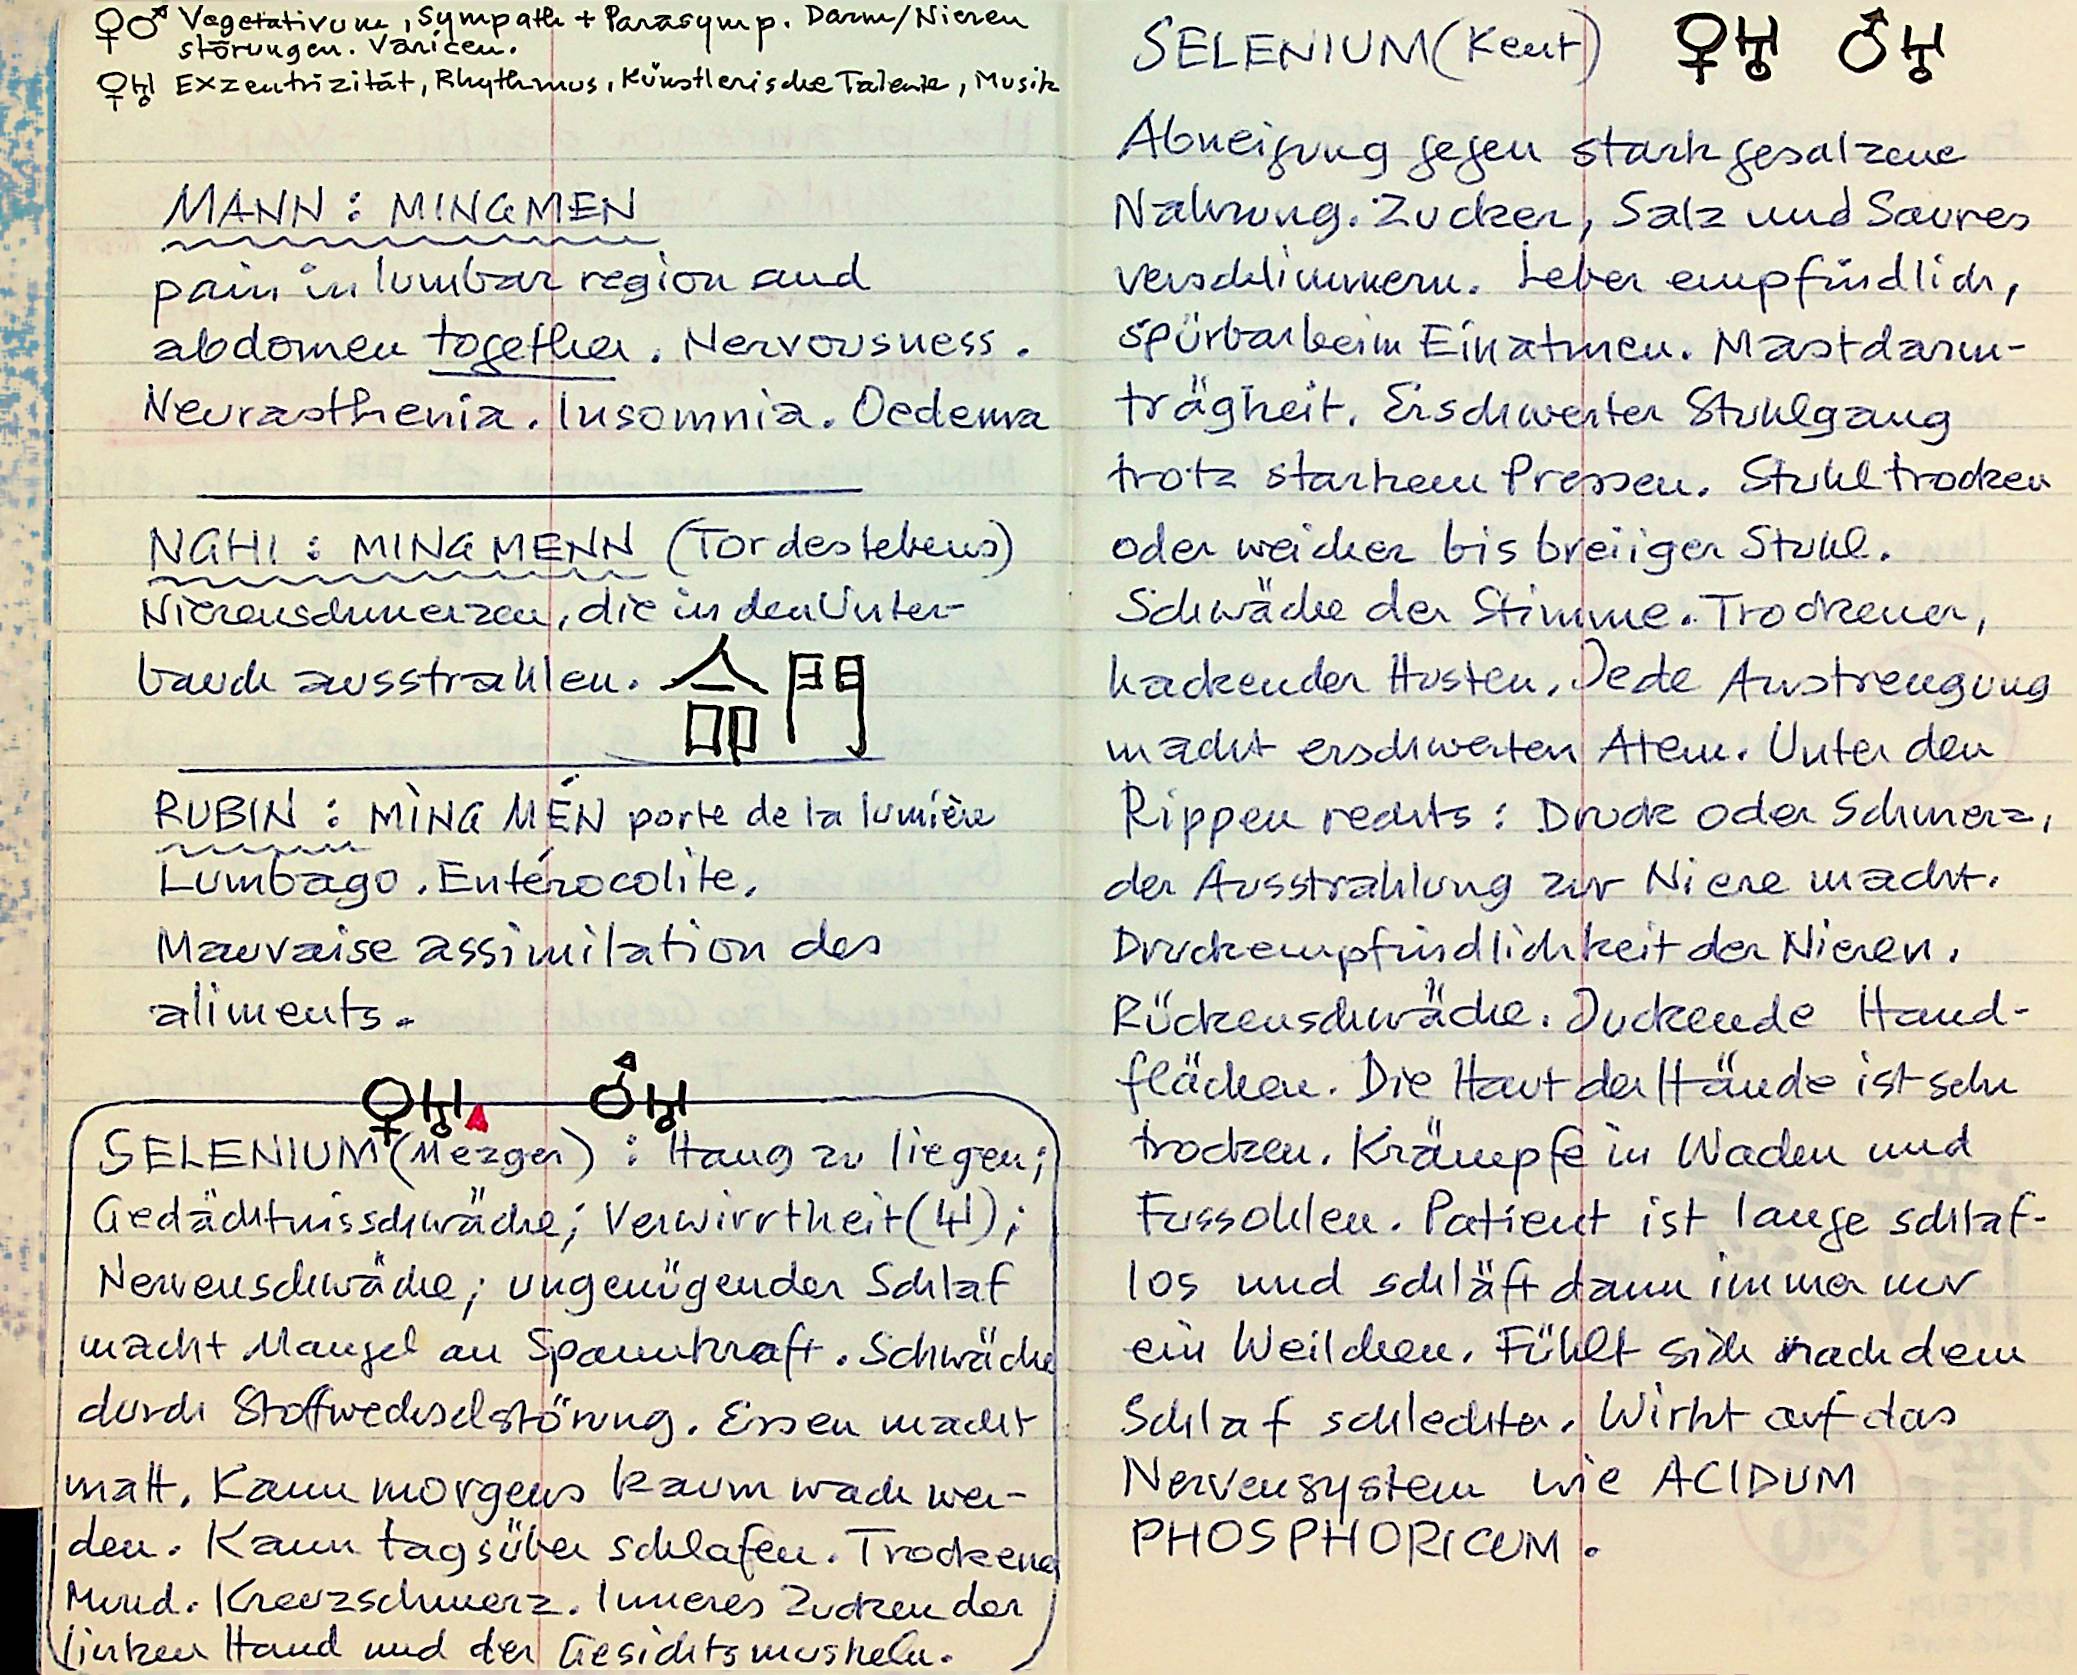 ♀♂ Vegetativum, Sympath + Parasymp. Darm/Nieren
störungen. Varicen.
♀♅ Exzentrizität, Rhythmus, Künstlerische Talente, Musik
MANN : MINGMEN
pain in lumbar region and
abdomen together. Nervousness.
Neurasthenia. Insomnia. Oedema
NGHI : MINGMENN (Tor des Lebens)
Nierenschmerzen, die in den Unter-
bauch ausstrahlen. 命門
RUBIN : MÌNG MÉN porte de la lumière
Lumbago. Entérocolite.
Mauvaise assimilation des
aliments.
♀♅ ♂♅
SELENIUM (Mezger) : Hang zu liegen;
Gedächtnisschwäche; Verwirrtheit (4);
Nervenschwäche; ungenügender Schlaf
macht Mangel an Spannkraft. Schwäche
durch Stoffwechselstörung. Essen macht
matt. Kann morgens kaum wach wer-
den. Kann tagsüber schlafen. Trockener
Mund. Kreuzschmerz. Inneres Zucken der
linken Hand und der Gesichtsmuskeln.
SELENIUM (Kent) ♀♅ ♂♅
Abneigung gegen stark gesalzene
Nahrung. Zucker, Salz und Saures
verschlimmern. Leber empfindlich,
spürbar beim Einatmen. Mastdarm-
trägheit. Erschwerter Stuhlgang
trotz starkem Pressen. Stuhl trocken
oder weicher bis breiiger Stuhl.
Schwäche der Stimme. Trockener,
hackender Husten. Jede Anstrengung
macht erschwerten Atem. Unter den
Rippen rechts : Druck oder Schmerz,
der Ausstrahlung zur Niere macht.
Druckempfindlichkeit der Nieren.
Rückenschwäche. Juckende Hand-
flächen. Die Haut der Hände ist sehr
trocken. Krämpfe in Waden und
Fussohlen. Patient ist lange schlaf-
los und schläft dann immer nur
ein Weilchen. Fühlt sich nach dem
Schlaf schlechter. Wirkt auf das
Nervensystem wie ACIDUM
PHOSPHORICUM.